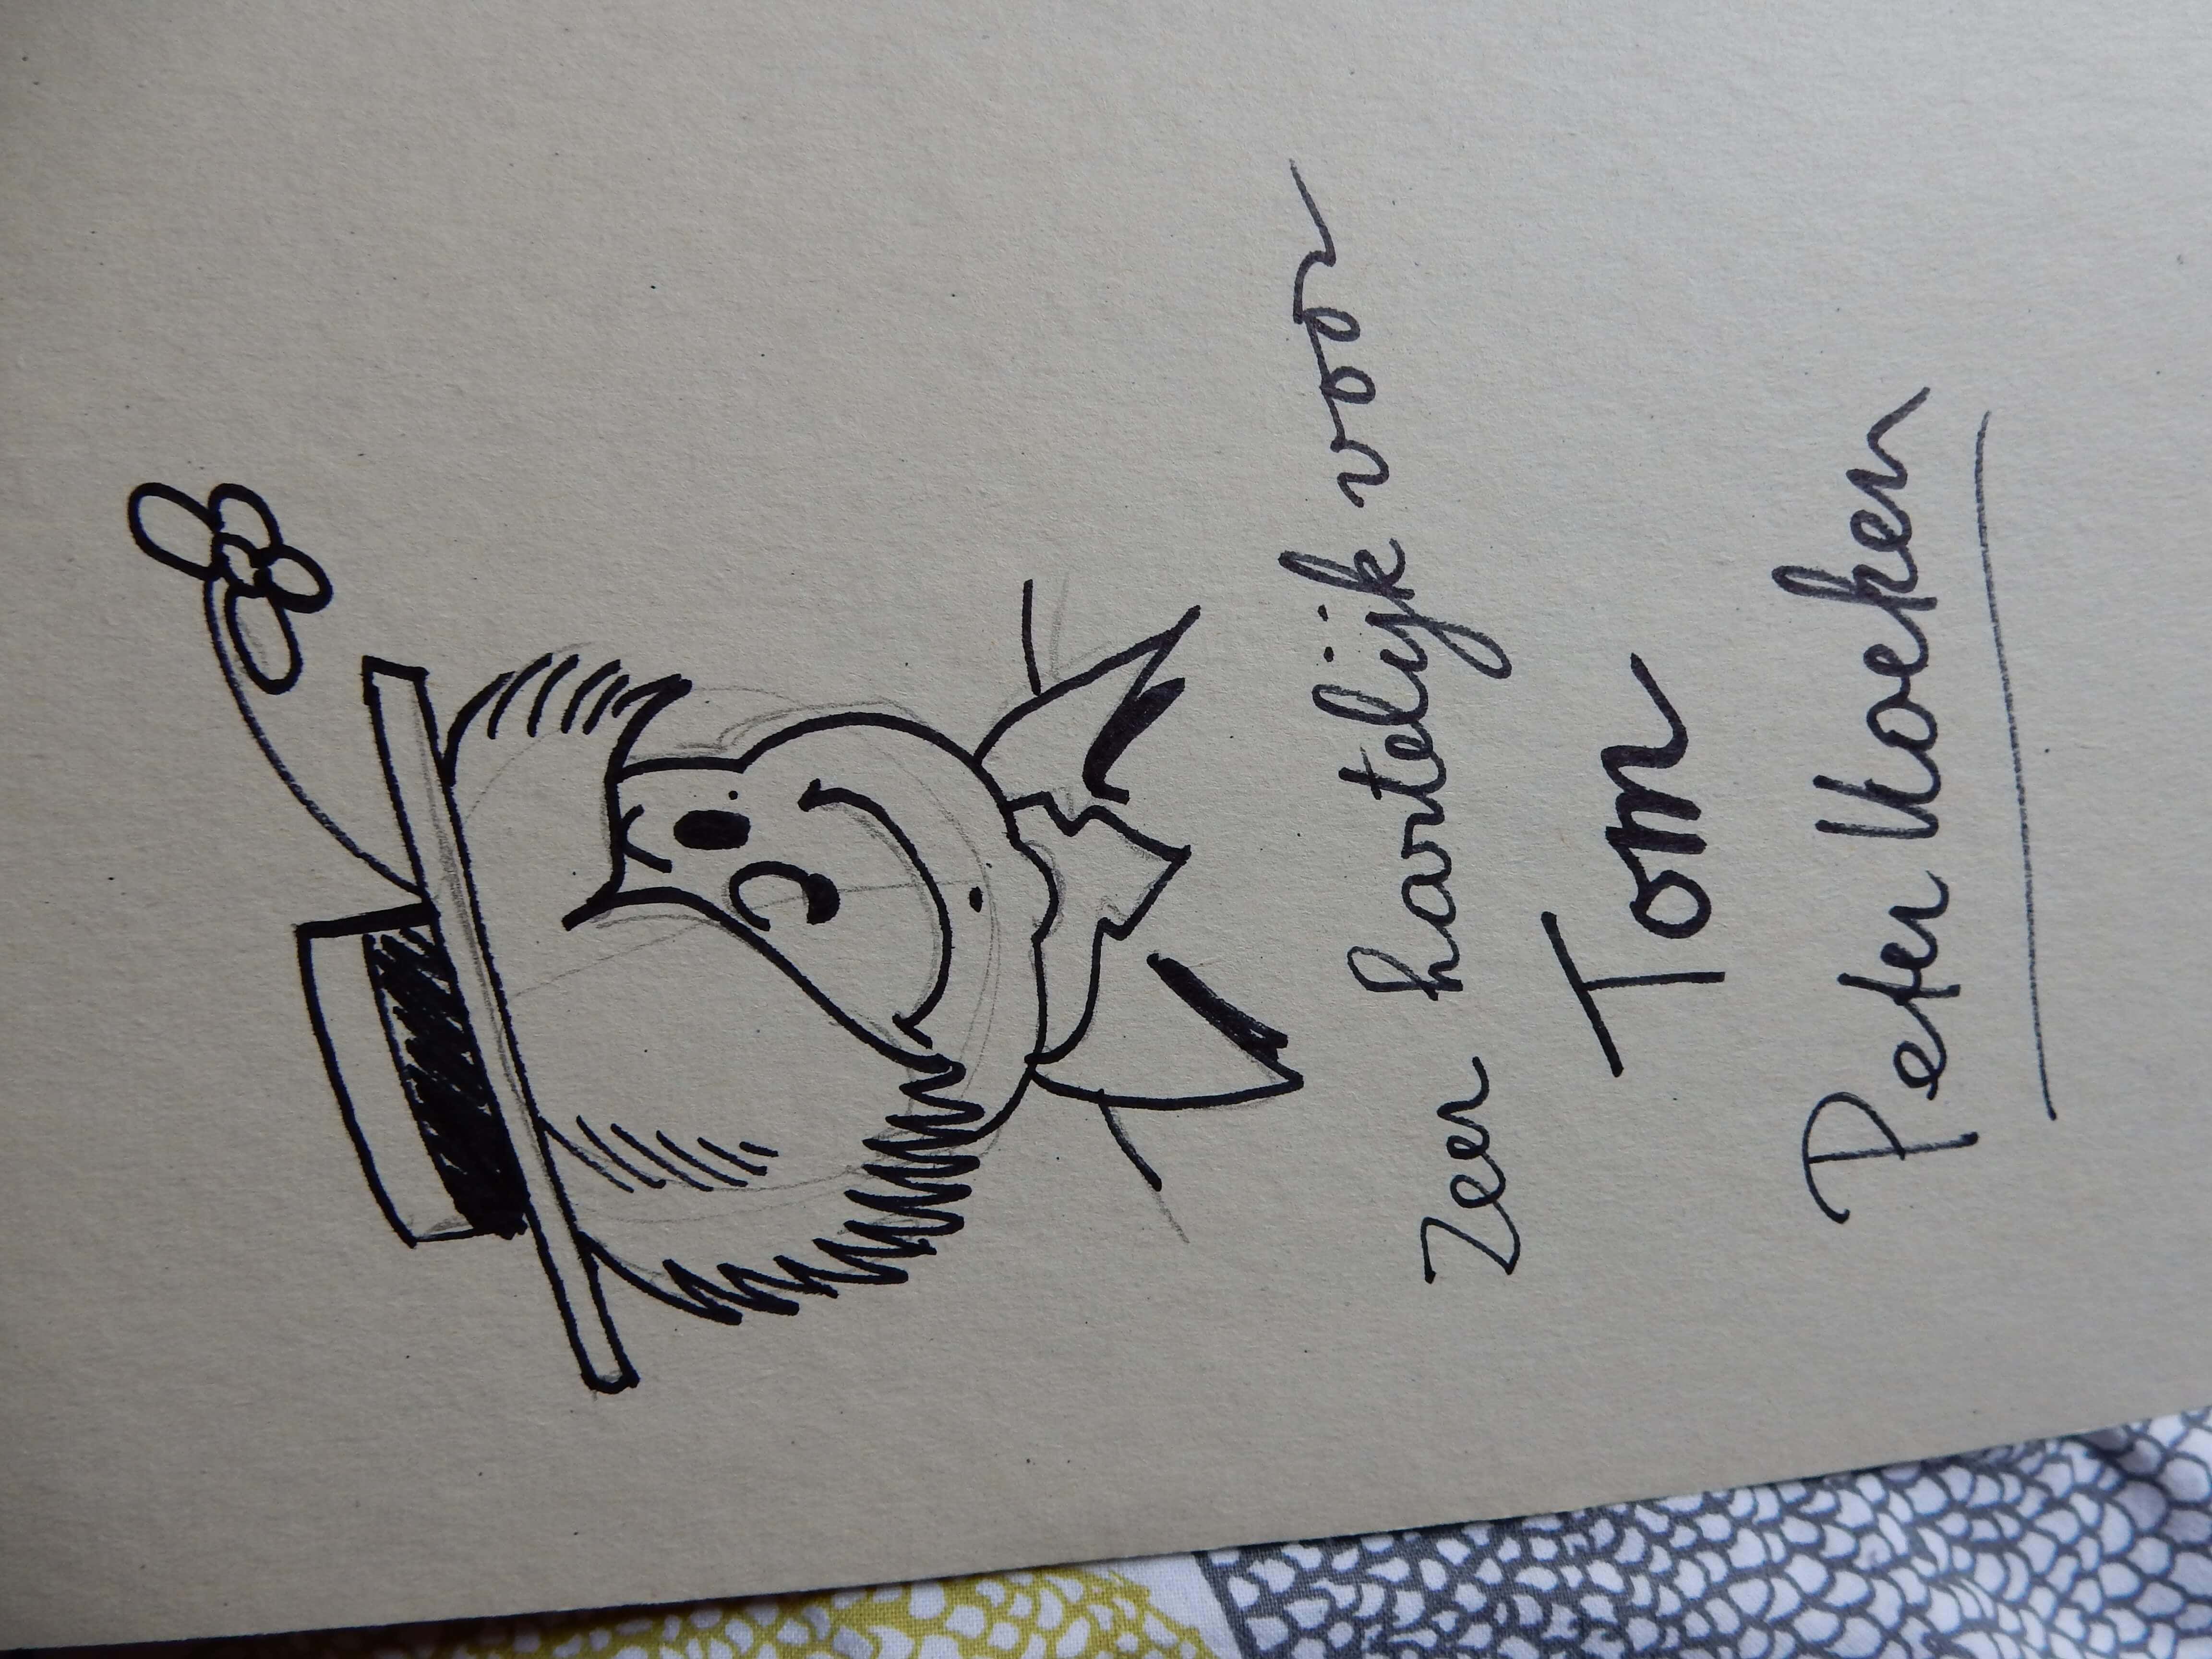 Zeer hartelijk voor
Tom
Peter Koeken